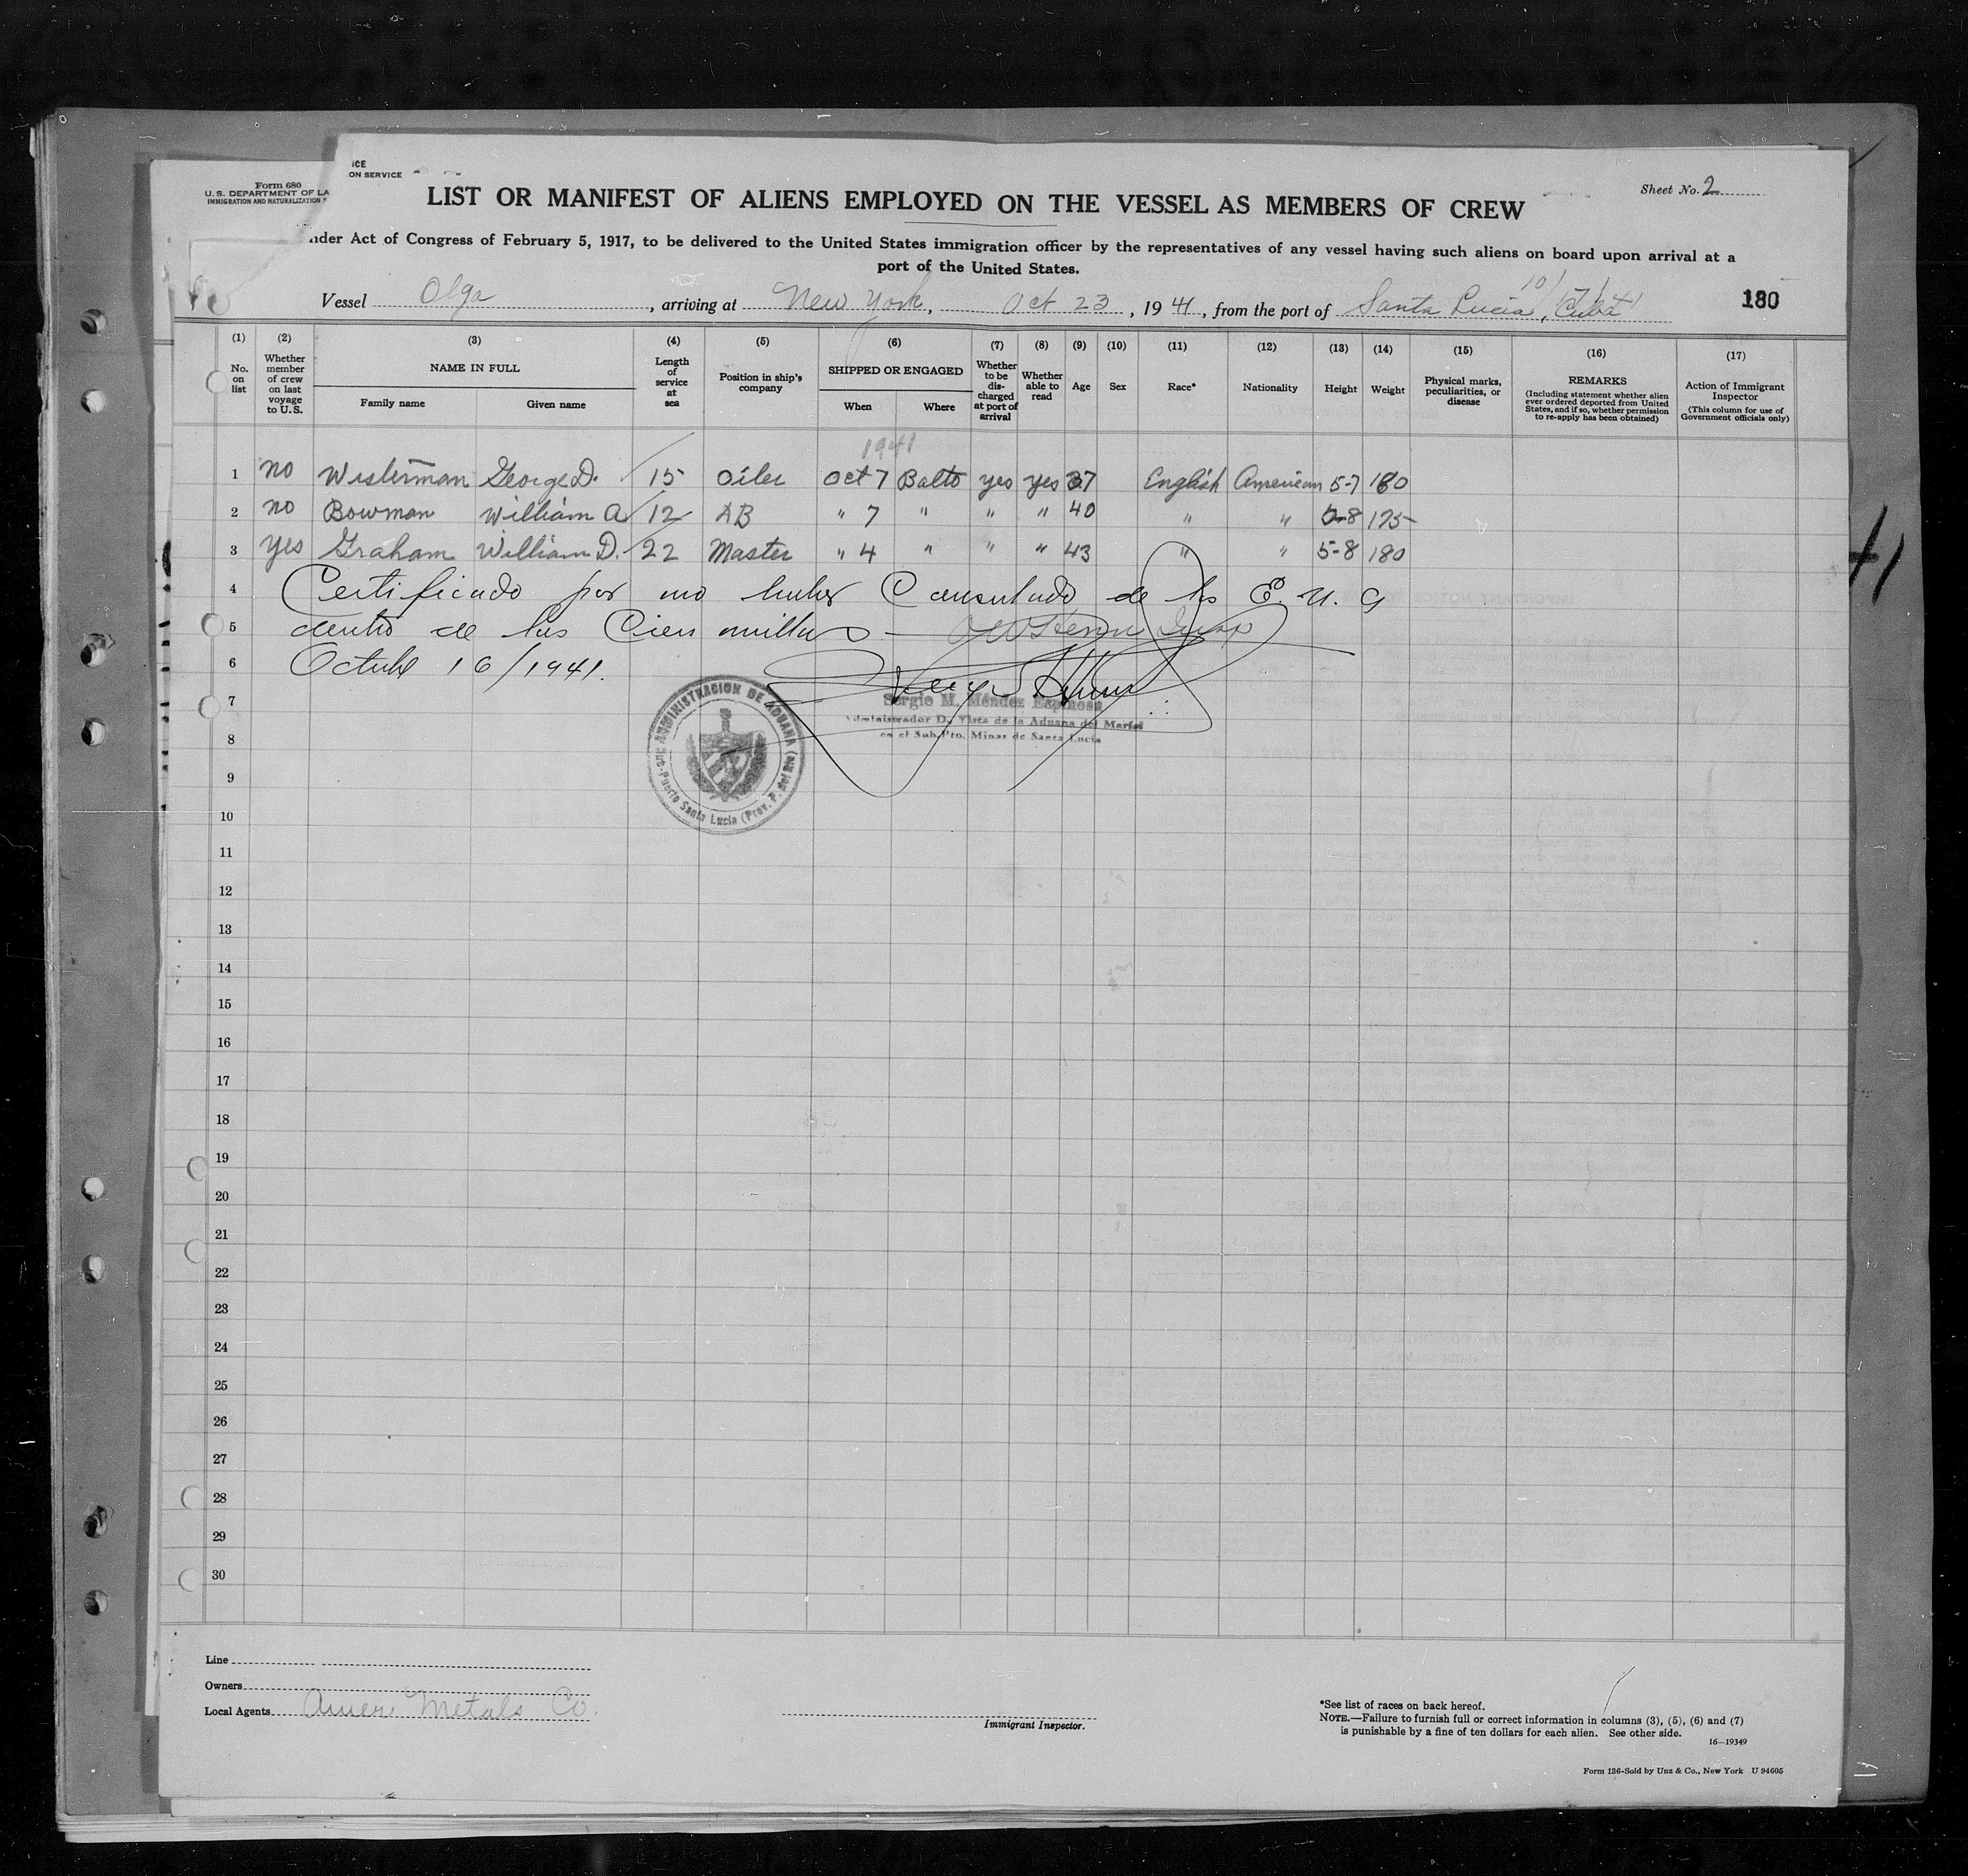 Form 680
U.S. DEPARTMENT OF LA
IMMIGRATION AND NATURALIZATION
ICE
ON SERVICE
Sheet No. 2
LIST OR MANIFEST OF ALIENS EMPLOYED ON THE VESSEL AS MEMBERS OF CREW
nder Act of Congress of February 5, 1917, to be delivered to the United States immigration officer by the representatives of any vessel having such aliens on board upon arrival at a
port of the United States.
10/17/41
Vessel Olga, arriving at New York, Oct 23, 1941, from the port of Santa Lucia, Cuba
180
(1) (2) (3) (4) (5) (6) (7) (8) (9) (10) (11) (12) (13) (14) (15) (16) (17)
No. on list
Whether member of crew on last voyage to U.S.
NAME IN FULL
Family name Given name
Length of service at sea
Position in ship's company
SHIPPED OR ENGAGED
When Where
Whether to be discharged at port of arrival
Whether able to read
Age
Sex
Race*
Nationality
Height
Weight
Physical marks, peculiarities, or disease
REMARKS
(Including statement whether alien ever ordered deported from United States, and if so, whether permission to re-apply has been obtained)
Action of Immigrant Inspector
(This column for use of Government officials only)
1941
1 no Westerman George D. 15 Oiler Oct 7 Balto yes yes 37 English American 5-7 180
2 no Bowman William A 12 AB " 7 " " " 40 " " 5-8 175
3 yes Graham William D. 22 Master " 4 " " " 43 " " 5-8 180
4 Certificado por no haber Consulado de los E. U. A
5 dentro de las Cien millas
6 Octubre 16/1941.
7
Sergio M. Méndez Espinosa
Administrador D. Vista de la Aduana del Mariel
en el Sub-Pto. Minas de Santa Lucia
ADMINISTRACION DE ADUANA
Sub-Puerto Santa Lucia (Prov. P. del Rio)
8
9
10
11
12
13
14
15
16
17
18
19
20
21
22
23
24
25
26
27
28
29
30
Line
Owners
Local Agents Amer Metals Co.
Immigrant Inspector.
*See list of races on back hereof.
NOTE.—Failure to furnish full or correct information in columns (3), (5), (6) and (7)
is punishable by a fine of ten dollars for each alien. See other side.
16—19349
Form 136-Sold by Unz & Co., New York U 94605
41